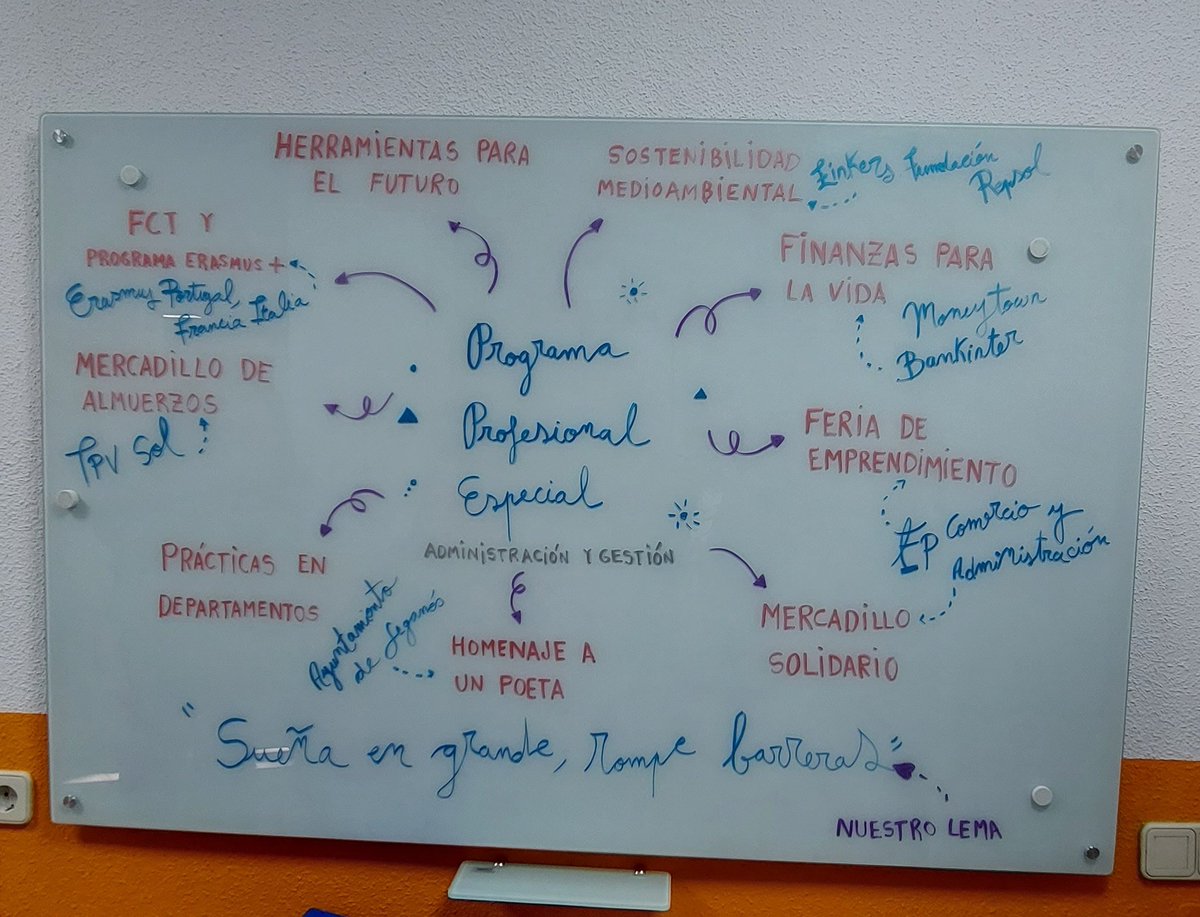 HERRAMIENTAS PARA
EL FUTURO
SOSTENIBILIDAD
MEDIOAMBIENTAL
Linkers Fundación
Repsol
FCT Y
PROGRAMA ERASMUS +
Erasmus Portugal,
Francia Italia
FINANZAS PARA
LA VIDA
Moneytown
Bankinter
MERCADILLO DE
ALMUERZOS
TPV Sol
Programa
Profesional
Especial
ADMINISTRACIÓN Y GESTIÓN
FERIA DE
EMPRENDIMIENTO
EP Comercio y
Administración
PRÁCTICAS EN
DEPARTAMENTOS
Ayuntamiento
de Leganés
HOMENAJE A
UN POETA
MERCADILLO
SOLIDARIO
"Sueña en grande, rompe barreras"
NUESTRO LEMA